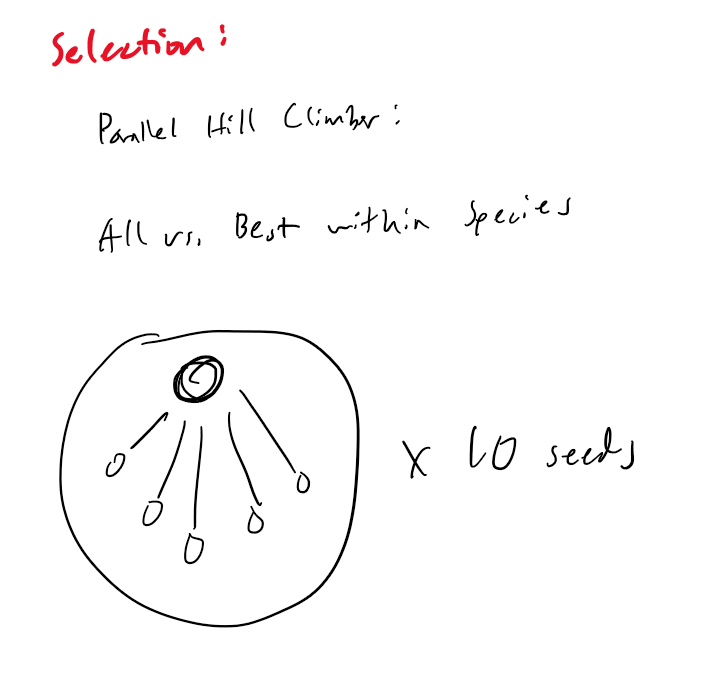 Selection:
Parallel Hill Climber:
All vs. Best within Species
x 10 seeds